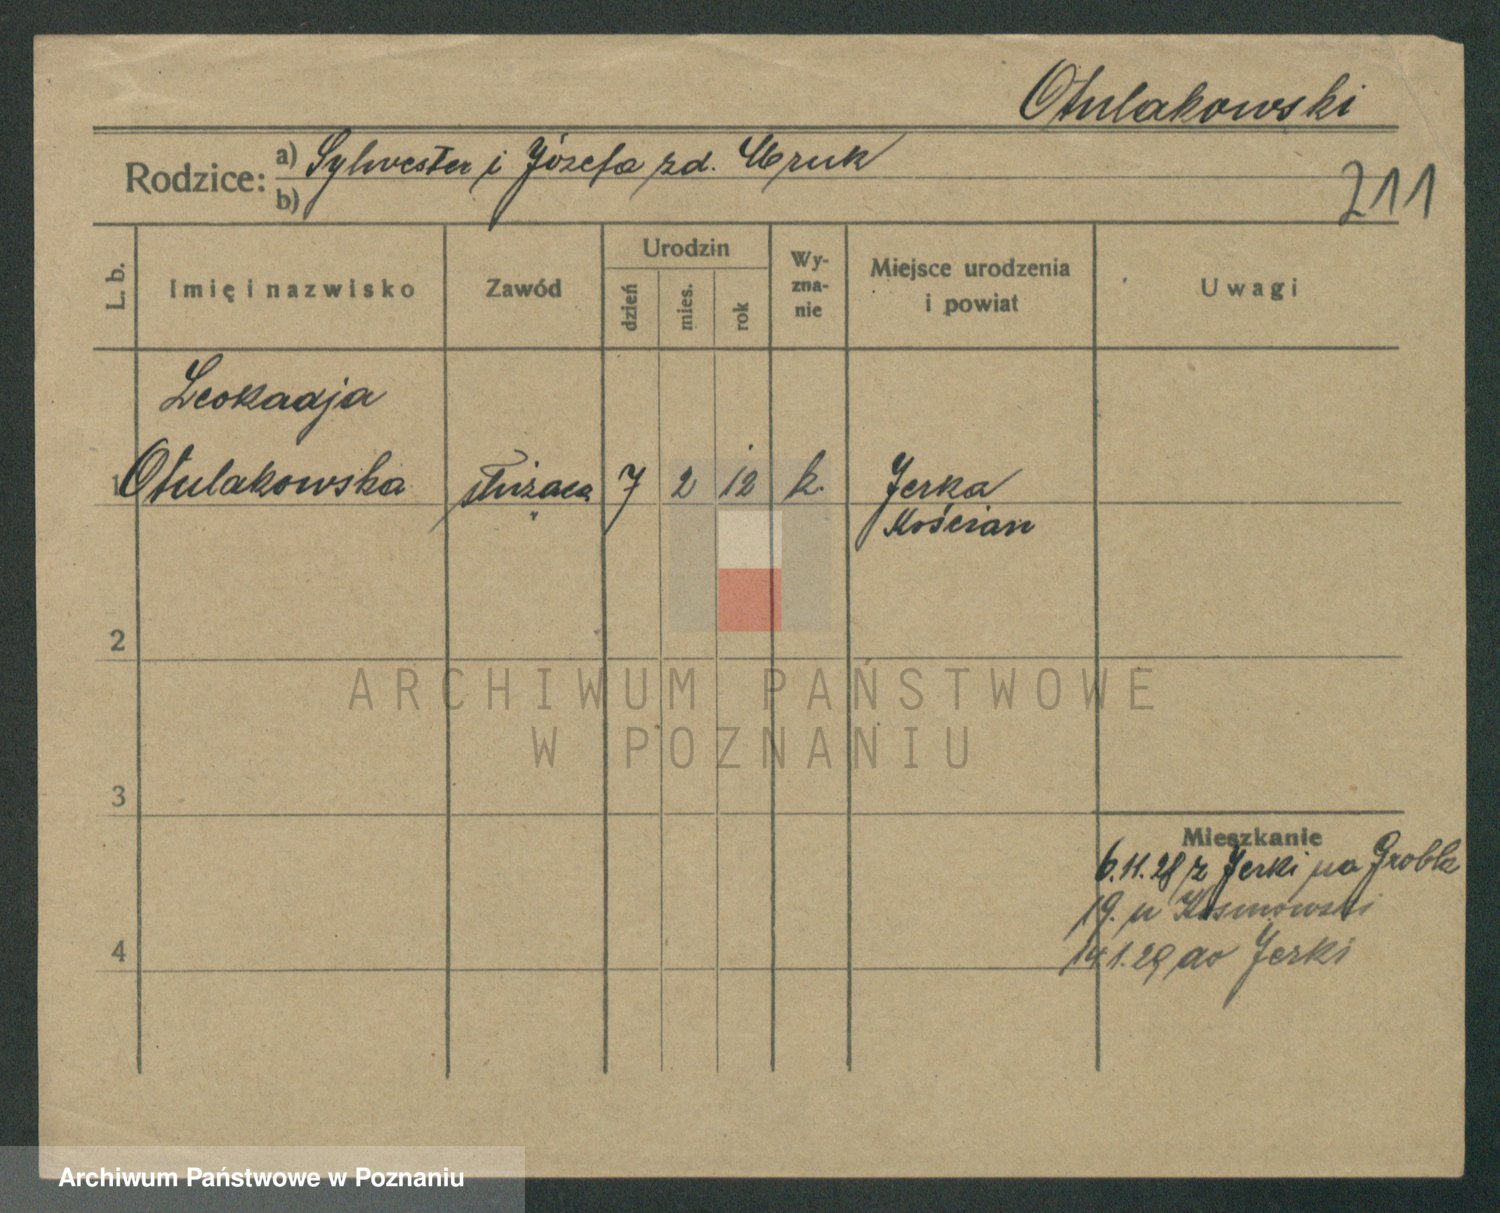 Otulakowski
Rodzice: a) Sylwester i Józefa zd. Mruk
b)
211
L. b. Imię i nazwisko Zawód Urodzin dzień mies. rok Wyznanie Miejsce urodzenia i powiat Uwagi
Leokadja
1 Otulakowska służąca 7 2 12 k. Jerka
Kościan
2
ARCHIWUM PAŃSTWOWE
W POZNANIU
3
Mieszkanie
6.11.28 z Jerki na Grobla
19. u Kosmowski
4
14.1.29 do Jerki
Archiwum Państwowe w Poznaniu